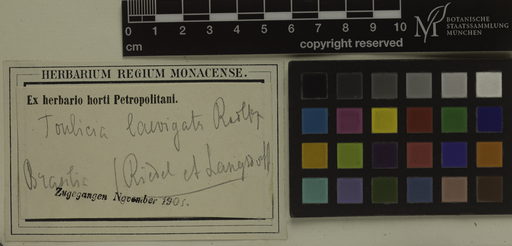 0 1 2 3 4 5 6 7 8 9 10
cm
copyright reserved
BOTANISCHE
STAATSSAMMLUNG
MÜNCHEN
HERBARIUM REGIUM MONACENSE.
Ex herbario horti Petropolitani.
Toulicia laevigata Radlk.
Brasilia (Riedel et Langsdorff
Zugegangen November 1905.